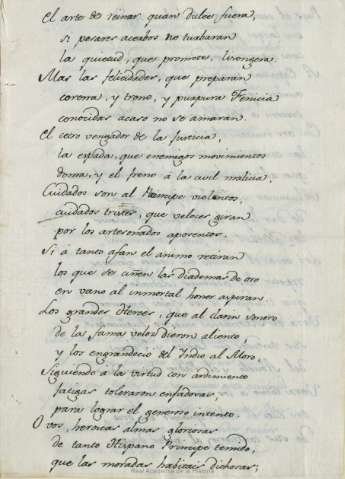 El arte de reinar quan dulce fuera,
si pesares acedos no turbaran
la quietud, que promete, lisongera.
Mas las felicidades, que preparan
corona, y trono, y purpura Fenicia
conocidas acaso no se amaran.
El cetro vengador de la Justicia,
la espada, que enemigos movimientos
doma, y el freno á la civil malicia,
Cuidados son al Principe violentos,
cuidados tristes, que veloces giran
por los artesonados aposentos.
Si á tanto afan el animo retiran
los que se ciñen las diademas de oro
en vano al inmortal honor aspiran.
Los grandes Heroes, que al clarin sonoro
de la fama veloz dieron aliento,
y los engrandeció del Indio al Moro,
Siguiendo á la virtud con ardimiento
fatigas toleraron enfadosas,
para lograr el generoso intento.
O vos, heroicas almas gloriosas
de tanto Hispano Principe temido,
que las moradas habitais dichosas,
Real Academia de la Historia